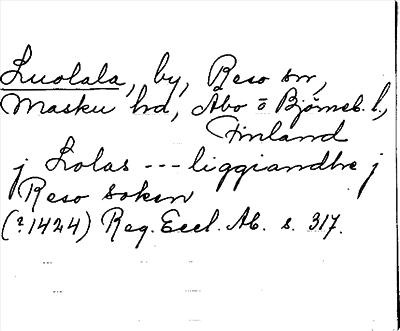 Luolala, by, Reso sn,
Masku hd, Åbo o Björneb. l.,
Finland
j Lolas --- liggiandhe j
Reso soken
(?1424) Reg. Eccl. Ab. s. 317.